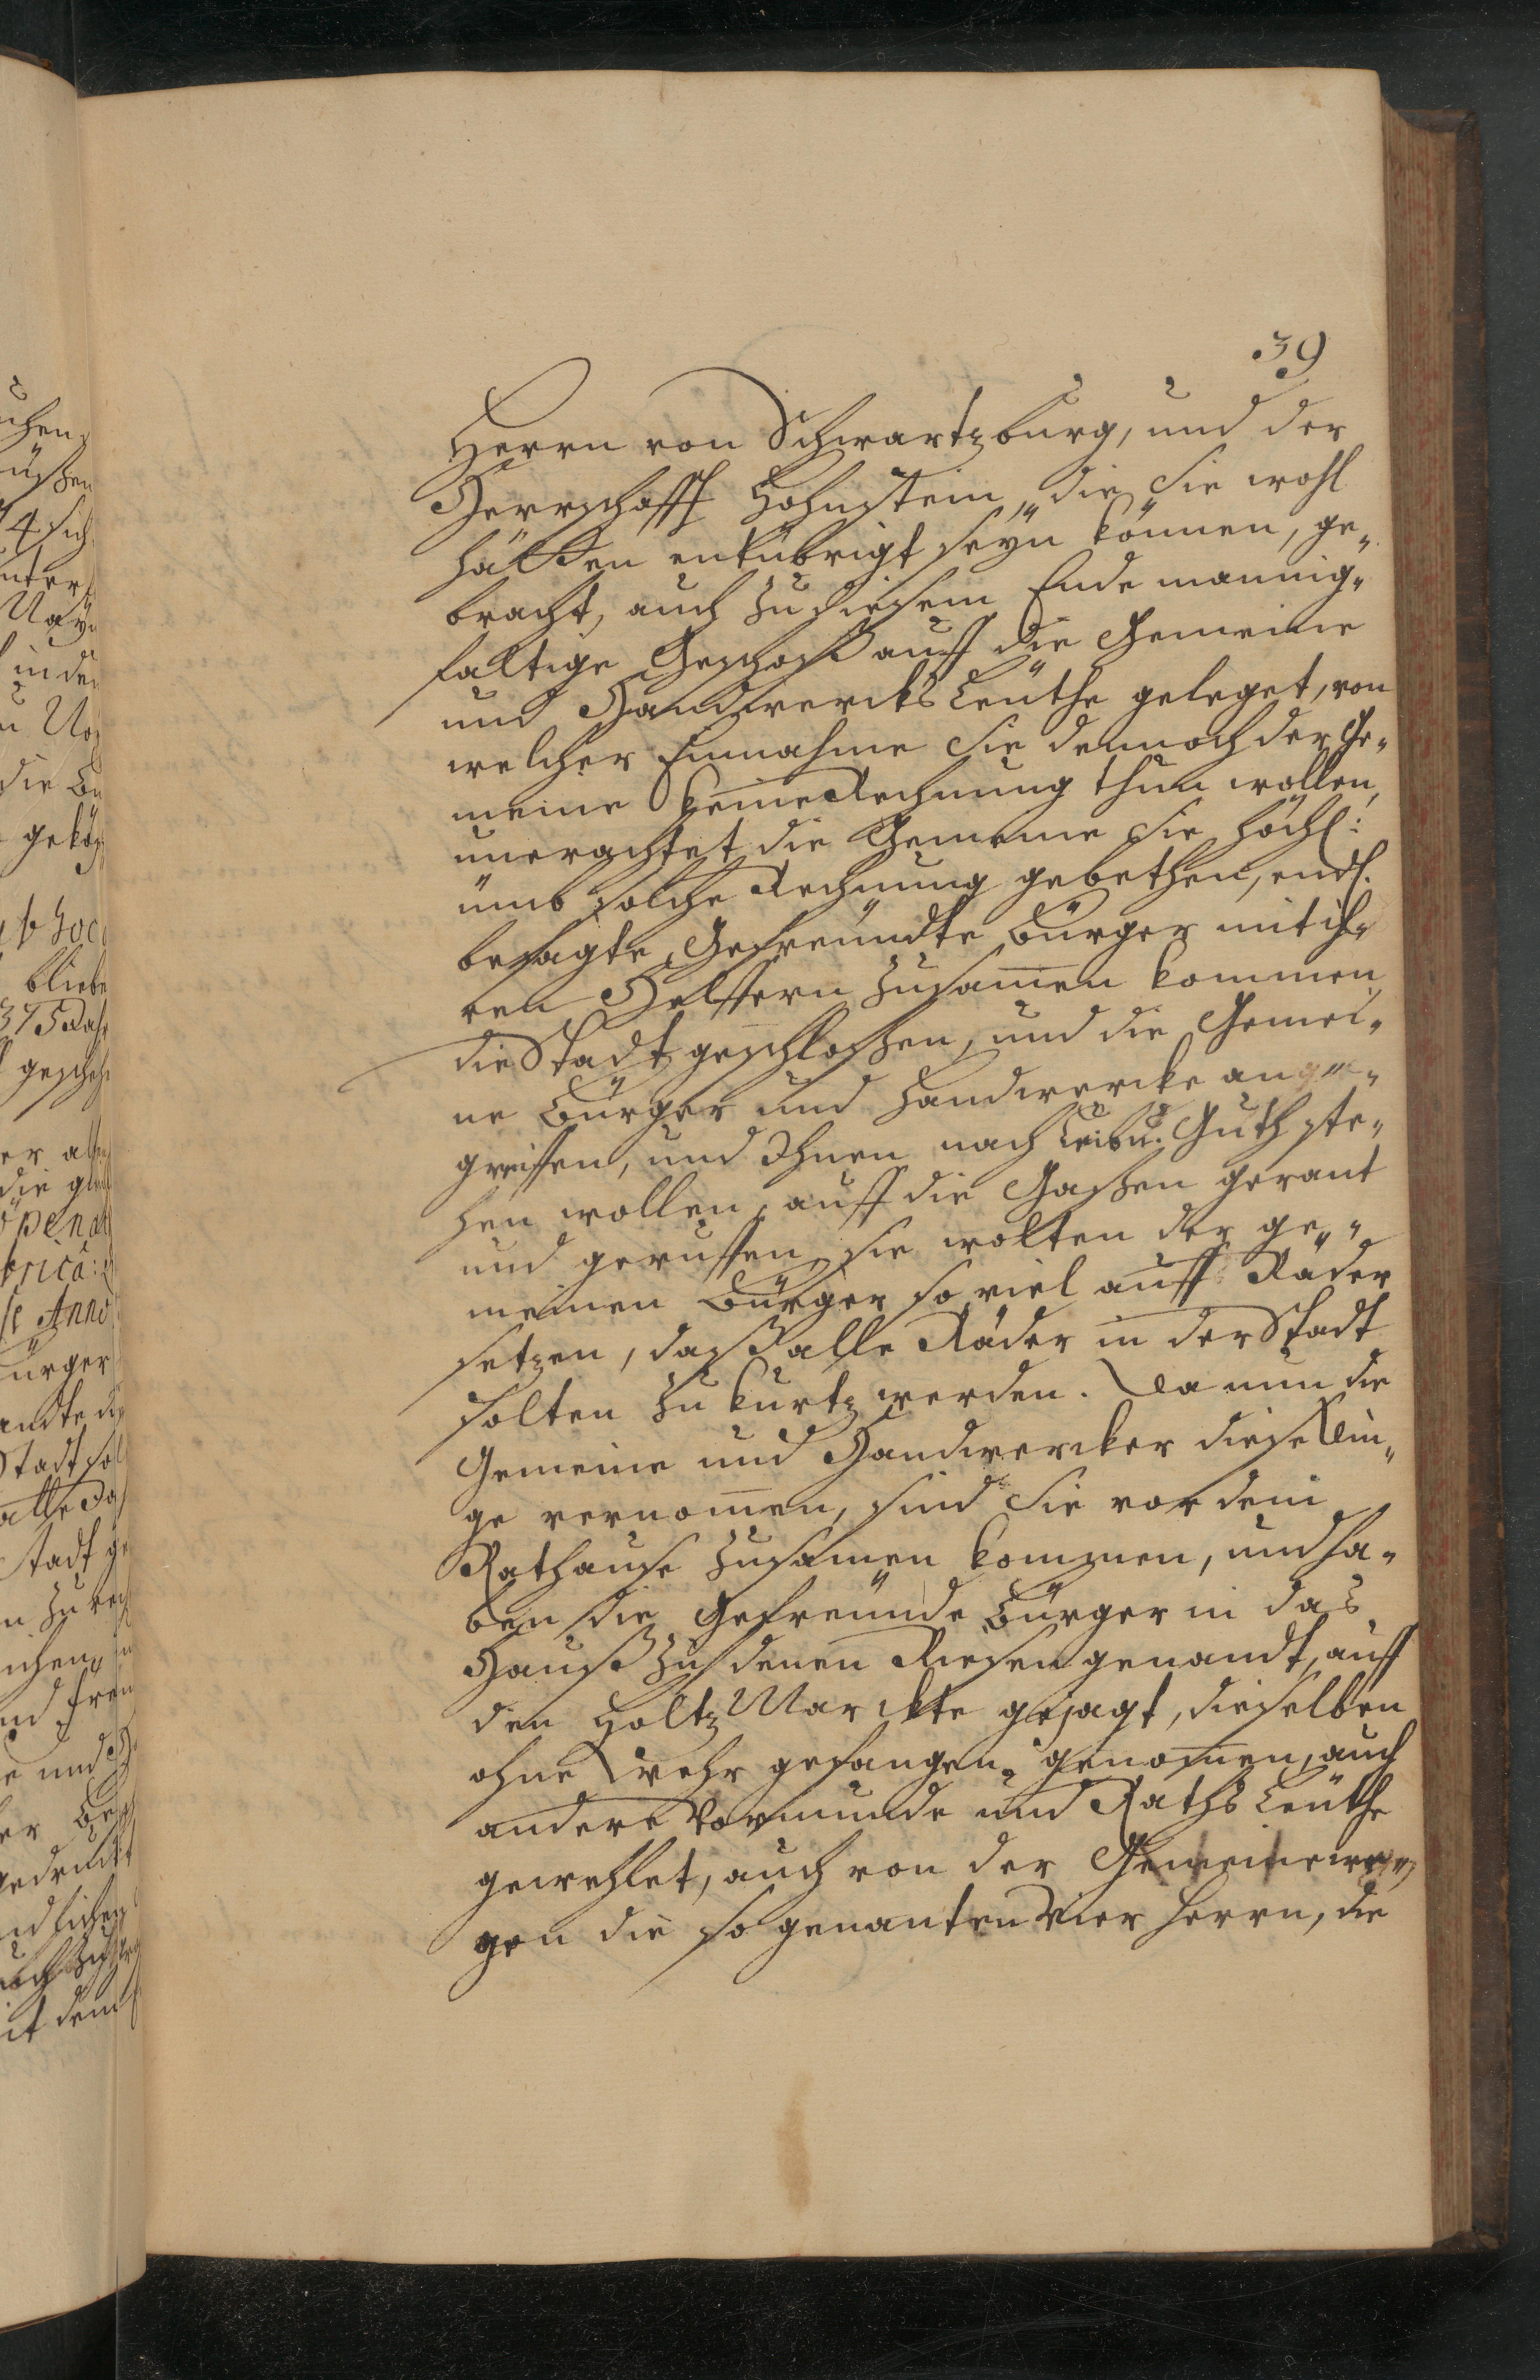 39
Herrn von Schwartzburg, und der
Herrschafft Hohnstein, die Sie wohl
hätten entübrigt seyn können, ge-
bracht, auch zu diesem Ende mannig-
faltige Geschoß auff die Gemeine
und Handwercks Leuthe geleget, von
welcher Einnahme Sie dennoch der Ge-
meine keine Rechnung thun wollen,
unerachtet die Gemeine Sie höchl:
umb solche Rechnung gebethen, endl.
besagte Gefreundte Bürger mit ih-
ren Helffern zusam̅en kommen,
die Stadt geschlossen, und die Gemei-
ne Bürger und Handwercke ange-
greiffen, und Ihnen nach Leib u. Guth ste-
hen wollen, auff die Gassen gerant
und geruffen, sie wolten der ge-
meinen Bürger so viel auff Räder
setzen, daß alle Räder in der Stadt
solten zu kurtz werden. Da nun die
Gemeine und Handwercker diese Din-
ge vernom̅en, sind Sie vor dem
Rathause zusam̅en kommen, und ha-
ben die Gefreunde Bürger in das
Hauß zu denen Riesen genandt, auff
den Holtz Marckte gejagt, dieselben
ohne Wehr gefangen genom̅en, auch
andere Vormunde und Raths Leuthe
gewehlet, auch von der Gemeine we-
gen die so genanten Vier Herrn, die